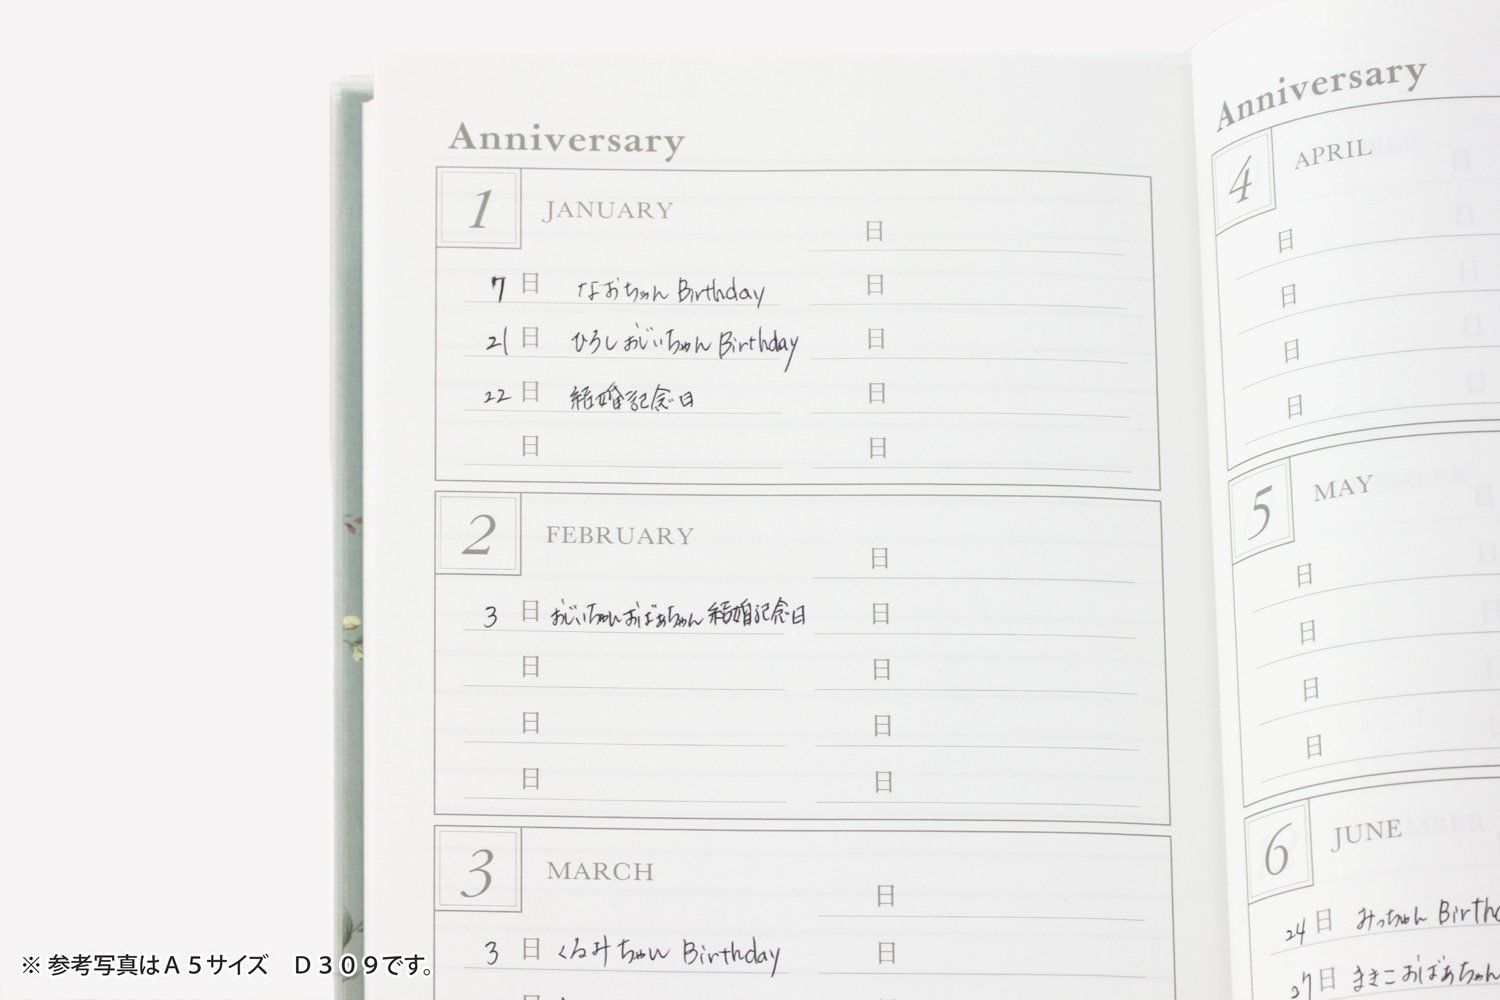 Anniversary
1 JANUARY
日
7日 なおちゃん Birthday 日
21日 ひろしおじいちゃん Birthday 日
22日 結婚記念日 日
日 日
2 FEBRUARY
日
3日 おじいちゃんおばあちゃん結婚記念日 日
日 日
日 日
日 日
3 MARCH
日
3日 くるみちゃん Birthday 日
Anniversary
4 APRIL
日
日
日
日
5 MAY
日
日
日
日
6 JUNE
24日 みっちゃん
27日 まきこおばあちゃん
※ 参考写真はA5サイズ D309です。